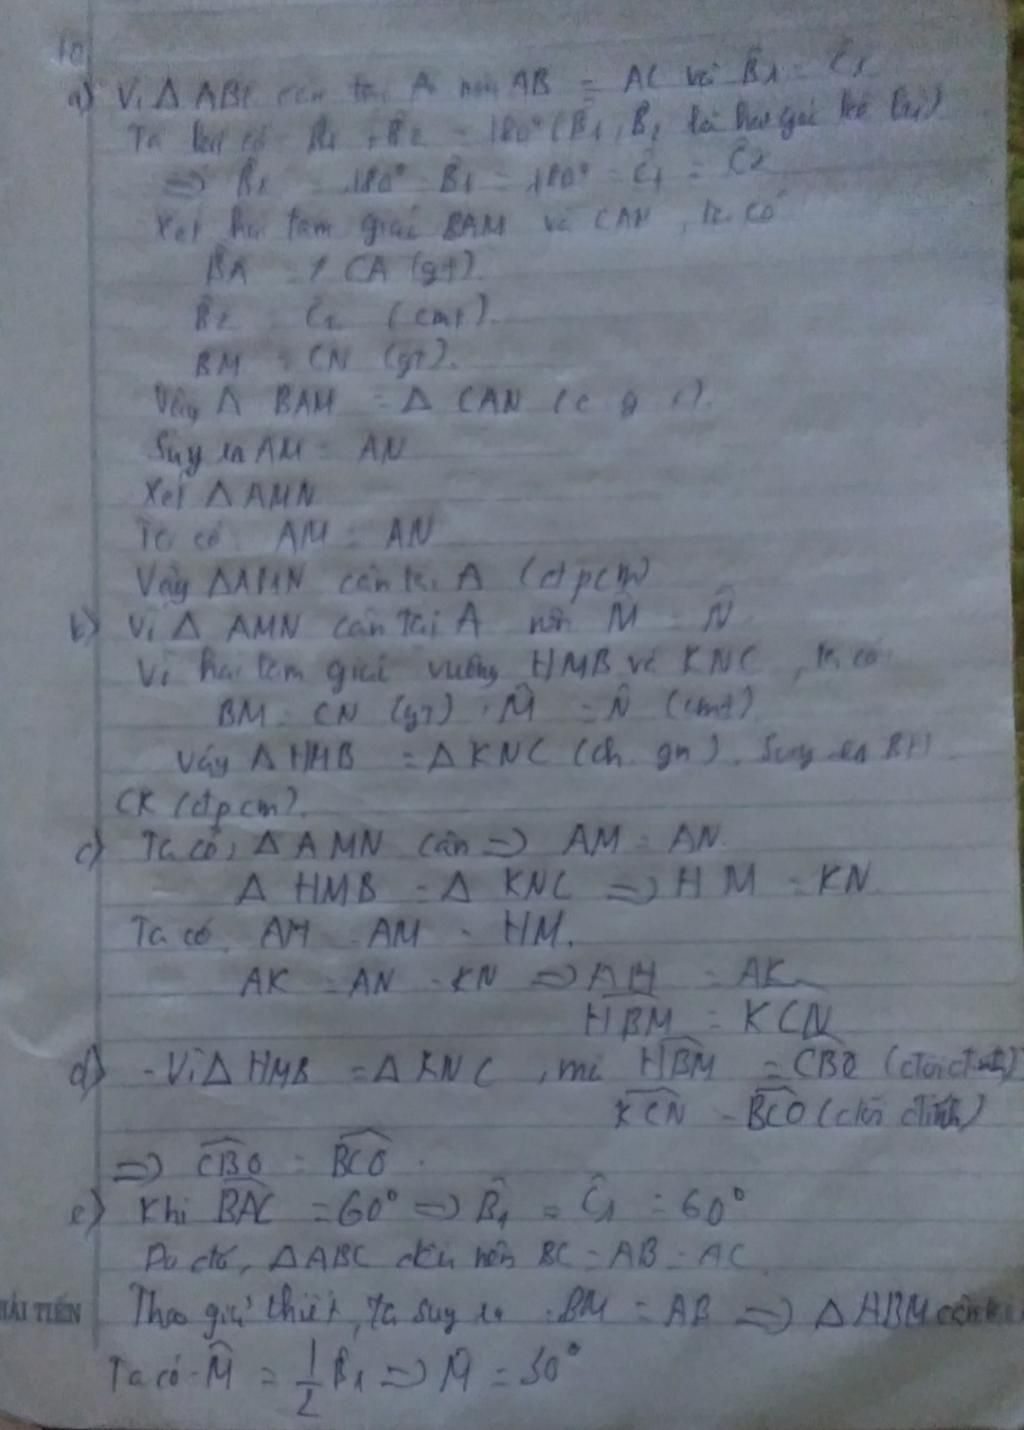 10
a) Vì Δ ABC cân tại A nên AB = AC và B̂1 = Ĉ1
Ta lại có B̂1 + B̂2 = 180° (B̂1, B̂2 là hai góc kề bù)
=> B̂2 = 180° - B̂1 = 180° - Ĉ1 = Ĉ2
Xét hai tam giác BAM và CAN, ta có
BA = CA (gt).
B̂2 = Ĉ2 (cmt).
BM = CN (gt).
Vậy Δ BAM = Δ CAN (c g c).
Suy ra AM = AN
Xét Δ AMN
Ta có AM = AN
Vậy ΔAMN cân tại A (đpcm)
b) Vì Δ AMN cân tại A nên M̂ = N̂
Vì hai tam giác vuông HMB và KNC, ta có
BM = CN (gt), M̂ = N̂ (cmt)
Vậy Δ HMB = Δ KNC (ch. gn). Suy ra BH
CK (đpcm).
c) Ta có, Δ AMN cân => AM = AN.
Δ HMB = Δ KNC => HM = KN.
Ta có AH = AM - HM.
AK = AN - KN => AH = AK
HBM = KCN
d) - Vì Δ HMB = Δ KNC, mà HBM = CBO (đối đỉnh)
KCN = BCO (đối đỉnh)
=> CBO = BCO.
e) Khi BAC = 60° => B̂1 = Ĉ1 = 60°
Do đó, ΔABC đều nên BC = AB = AC
HẢI TIẾN
Theo giả thiết, ta suy ra BM = AB => Δ ABM cân
Ta có M̂ = 1/2 B̂1 => M̂ = 30°